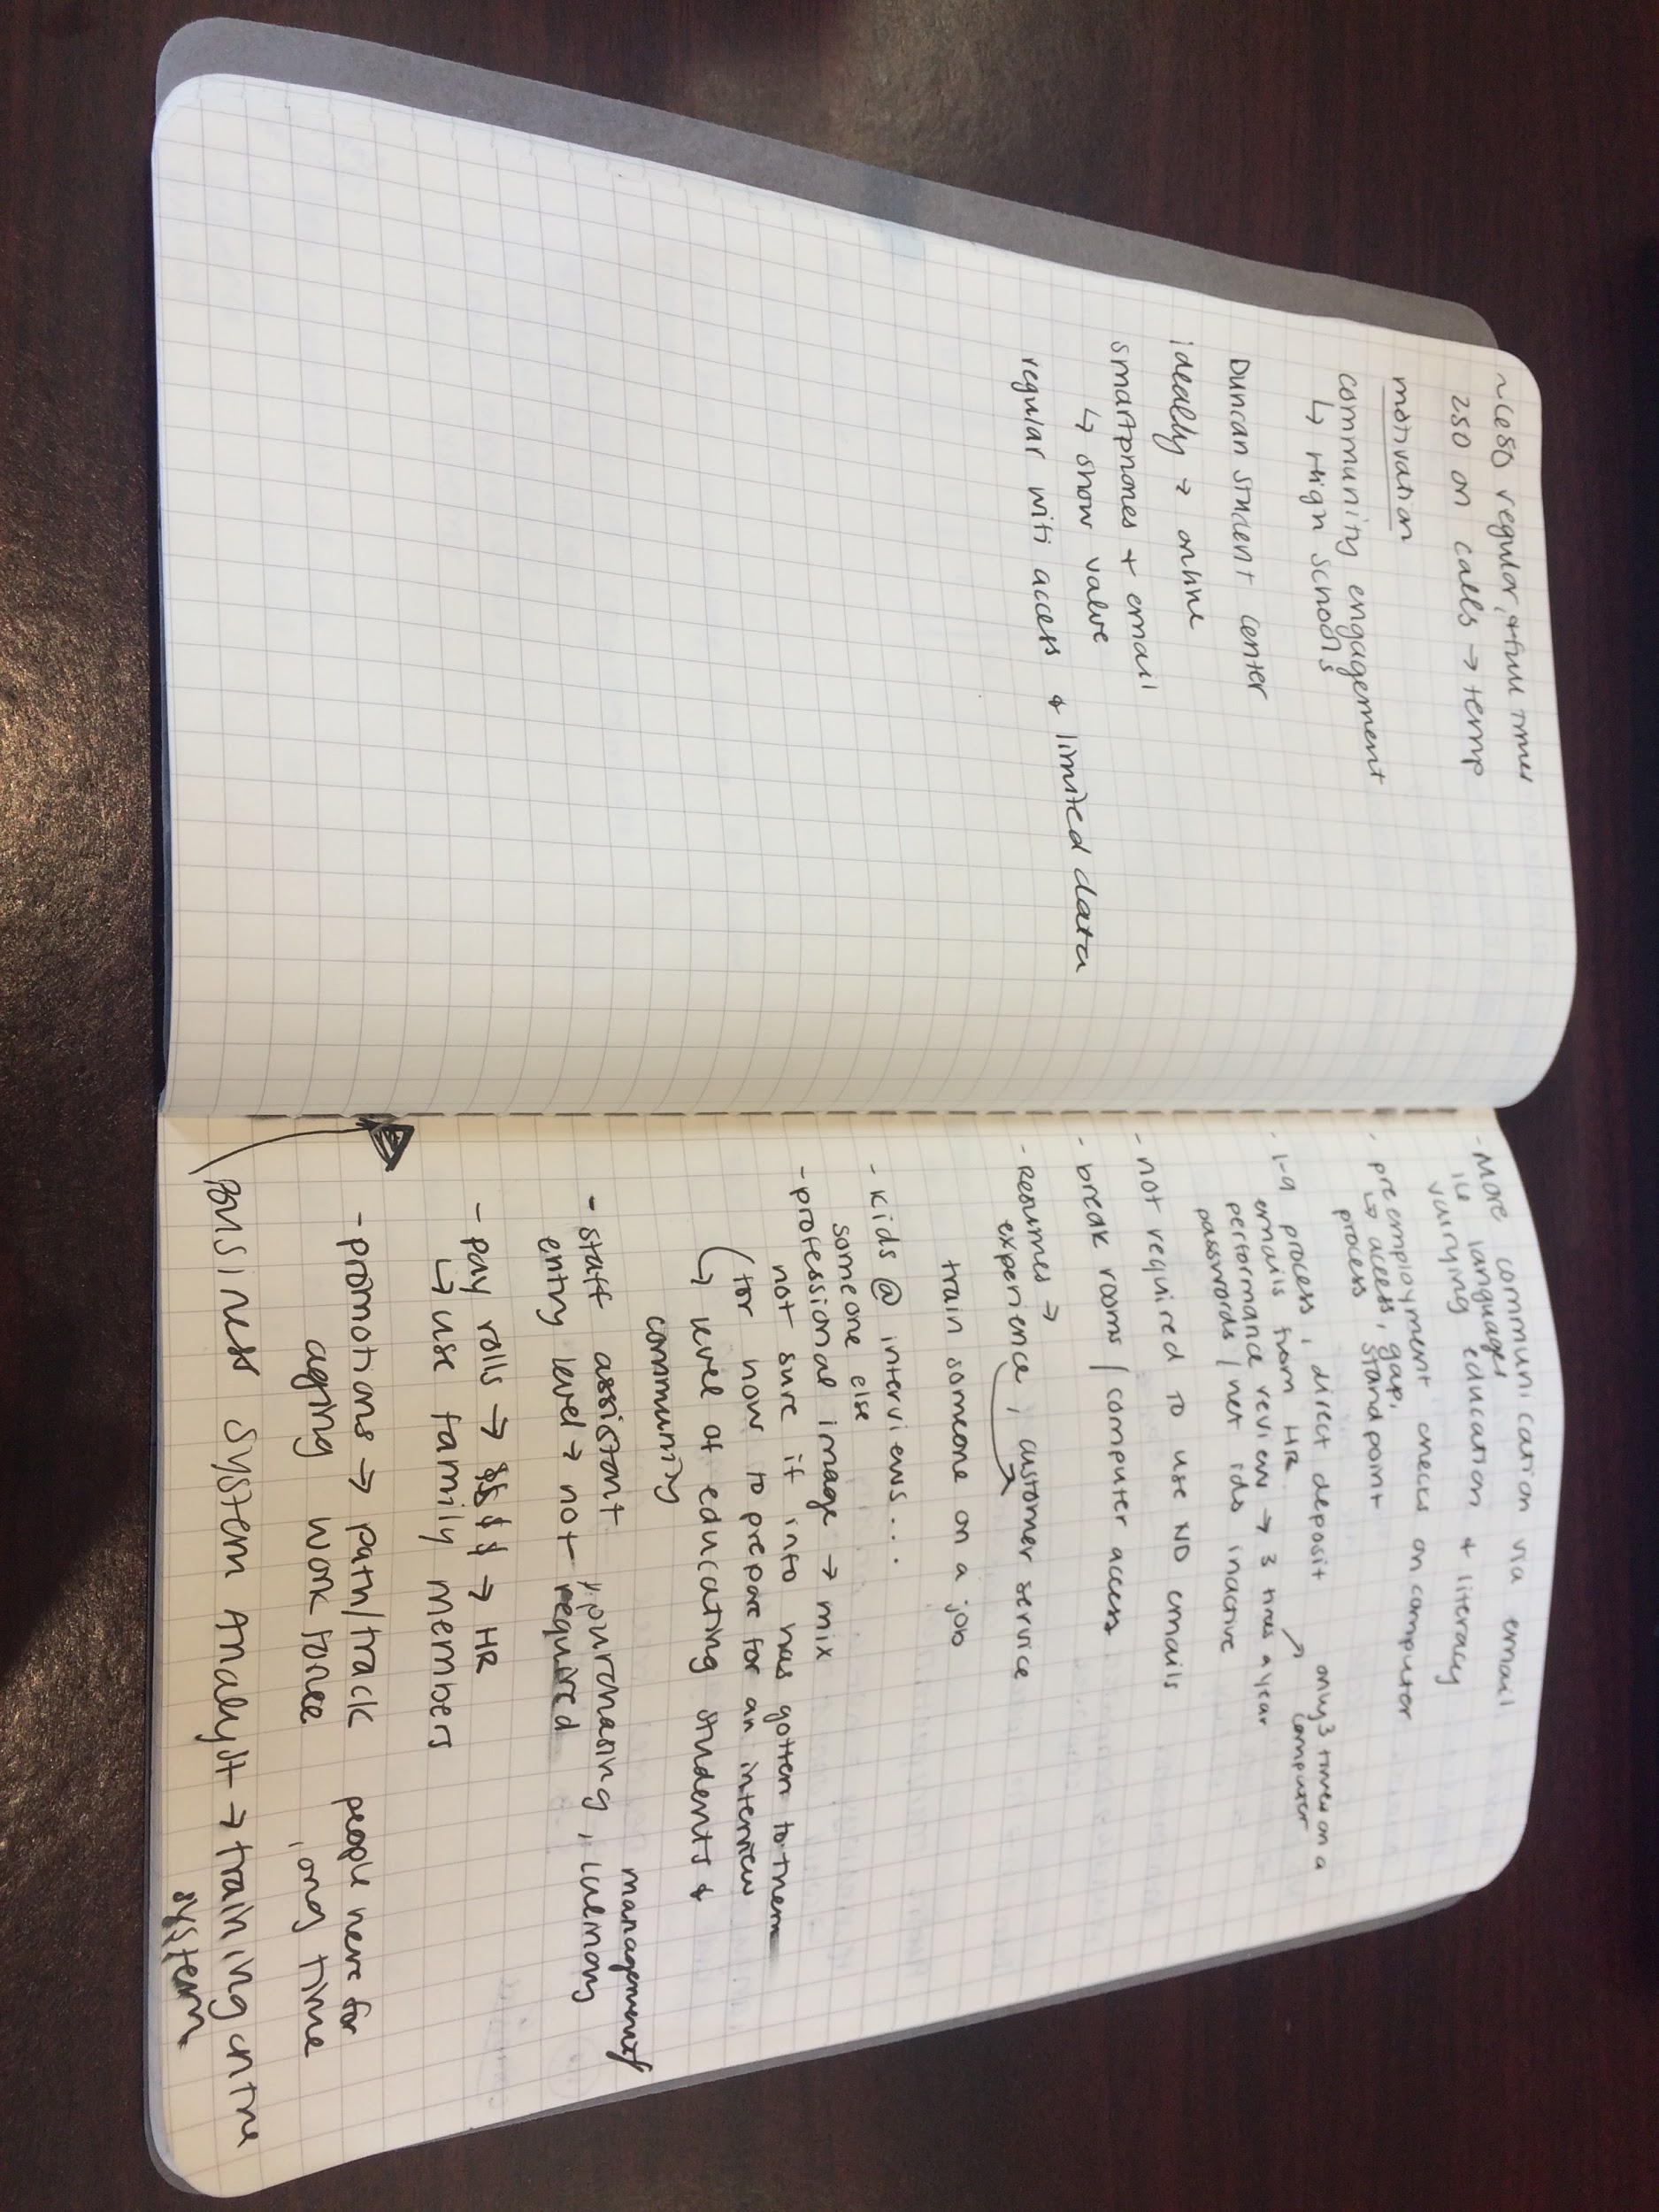 ~ 650 regular, + full times
250 on calls → temp
motivation
community engagement
↳ High schools
Duncan Student Center
ideally → online
smartphones + email
↳ show value
regular wifi access & limited data
- More communication via email
languages
varying education & literacy
- pre employment checks on computer
↳ access, gap,
standpoint
process
- I-9 process, direct deposit
only 3 times on a
computer
emails from HR
performance review → 3 times a year
passwords / net ids inactive
- not required to use ND emails
- break rooms / computer access
- Resumes →
experience, customer service
train someone on a job
- kids @ interviews...
someone else
- professional image → mix
not sure if info has gotten to them
for how to prepare for an interview
↳ level of educating students &
community
- staff assistant, purchasing, culinary
management
entry level → not required
- pay rolls → $$$$ → HR
↳ use family members
- promotions → path/track
people here for
long time
aging work force
Business System Analyst → training entire
system